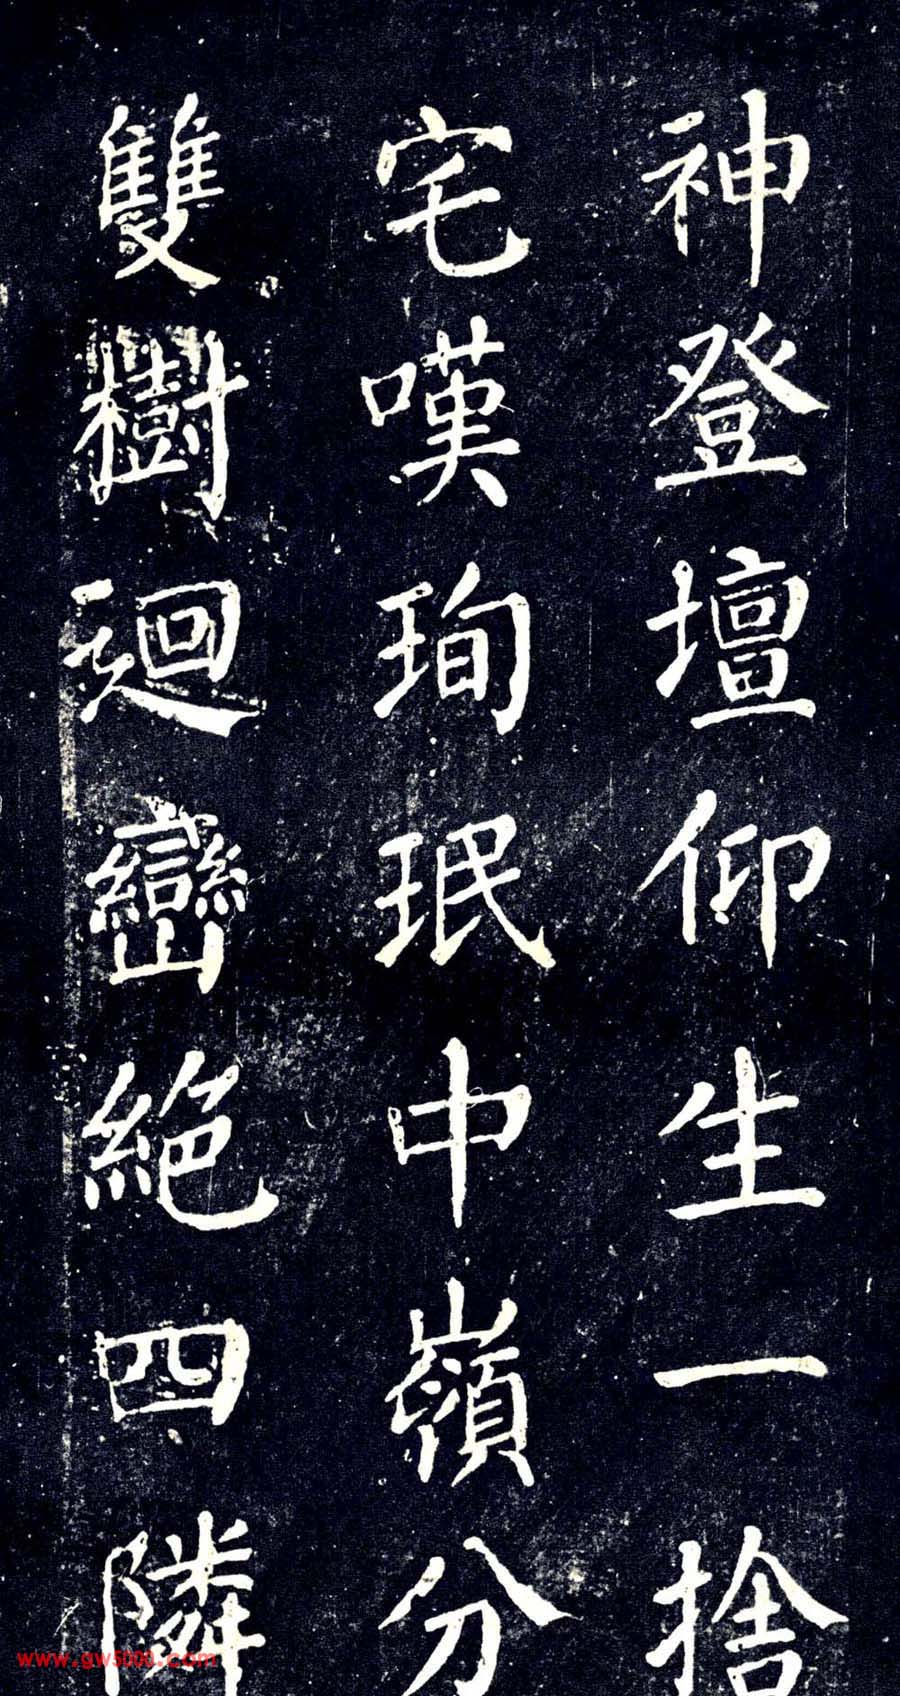 神登壇仰生一捨
宅嘆珣珉中嶺分
雙樹迴巒絕四隣
www.gw5000.com